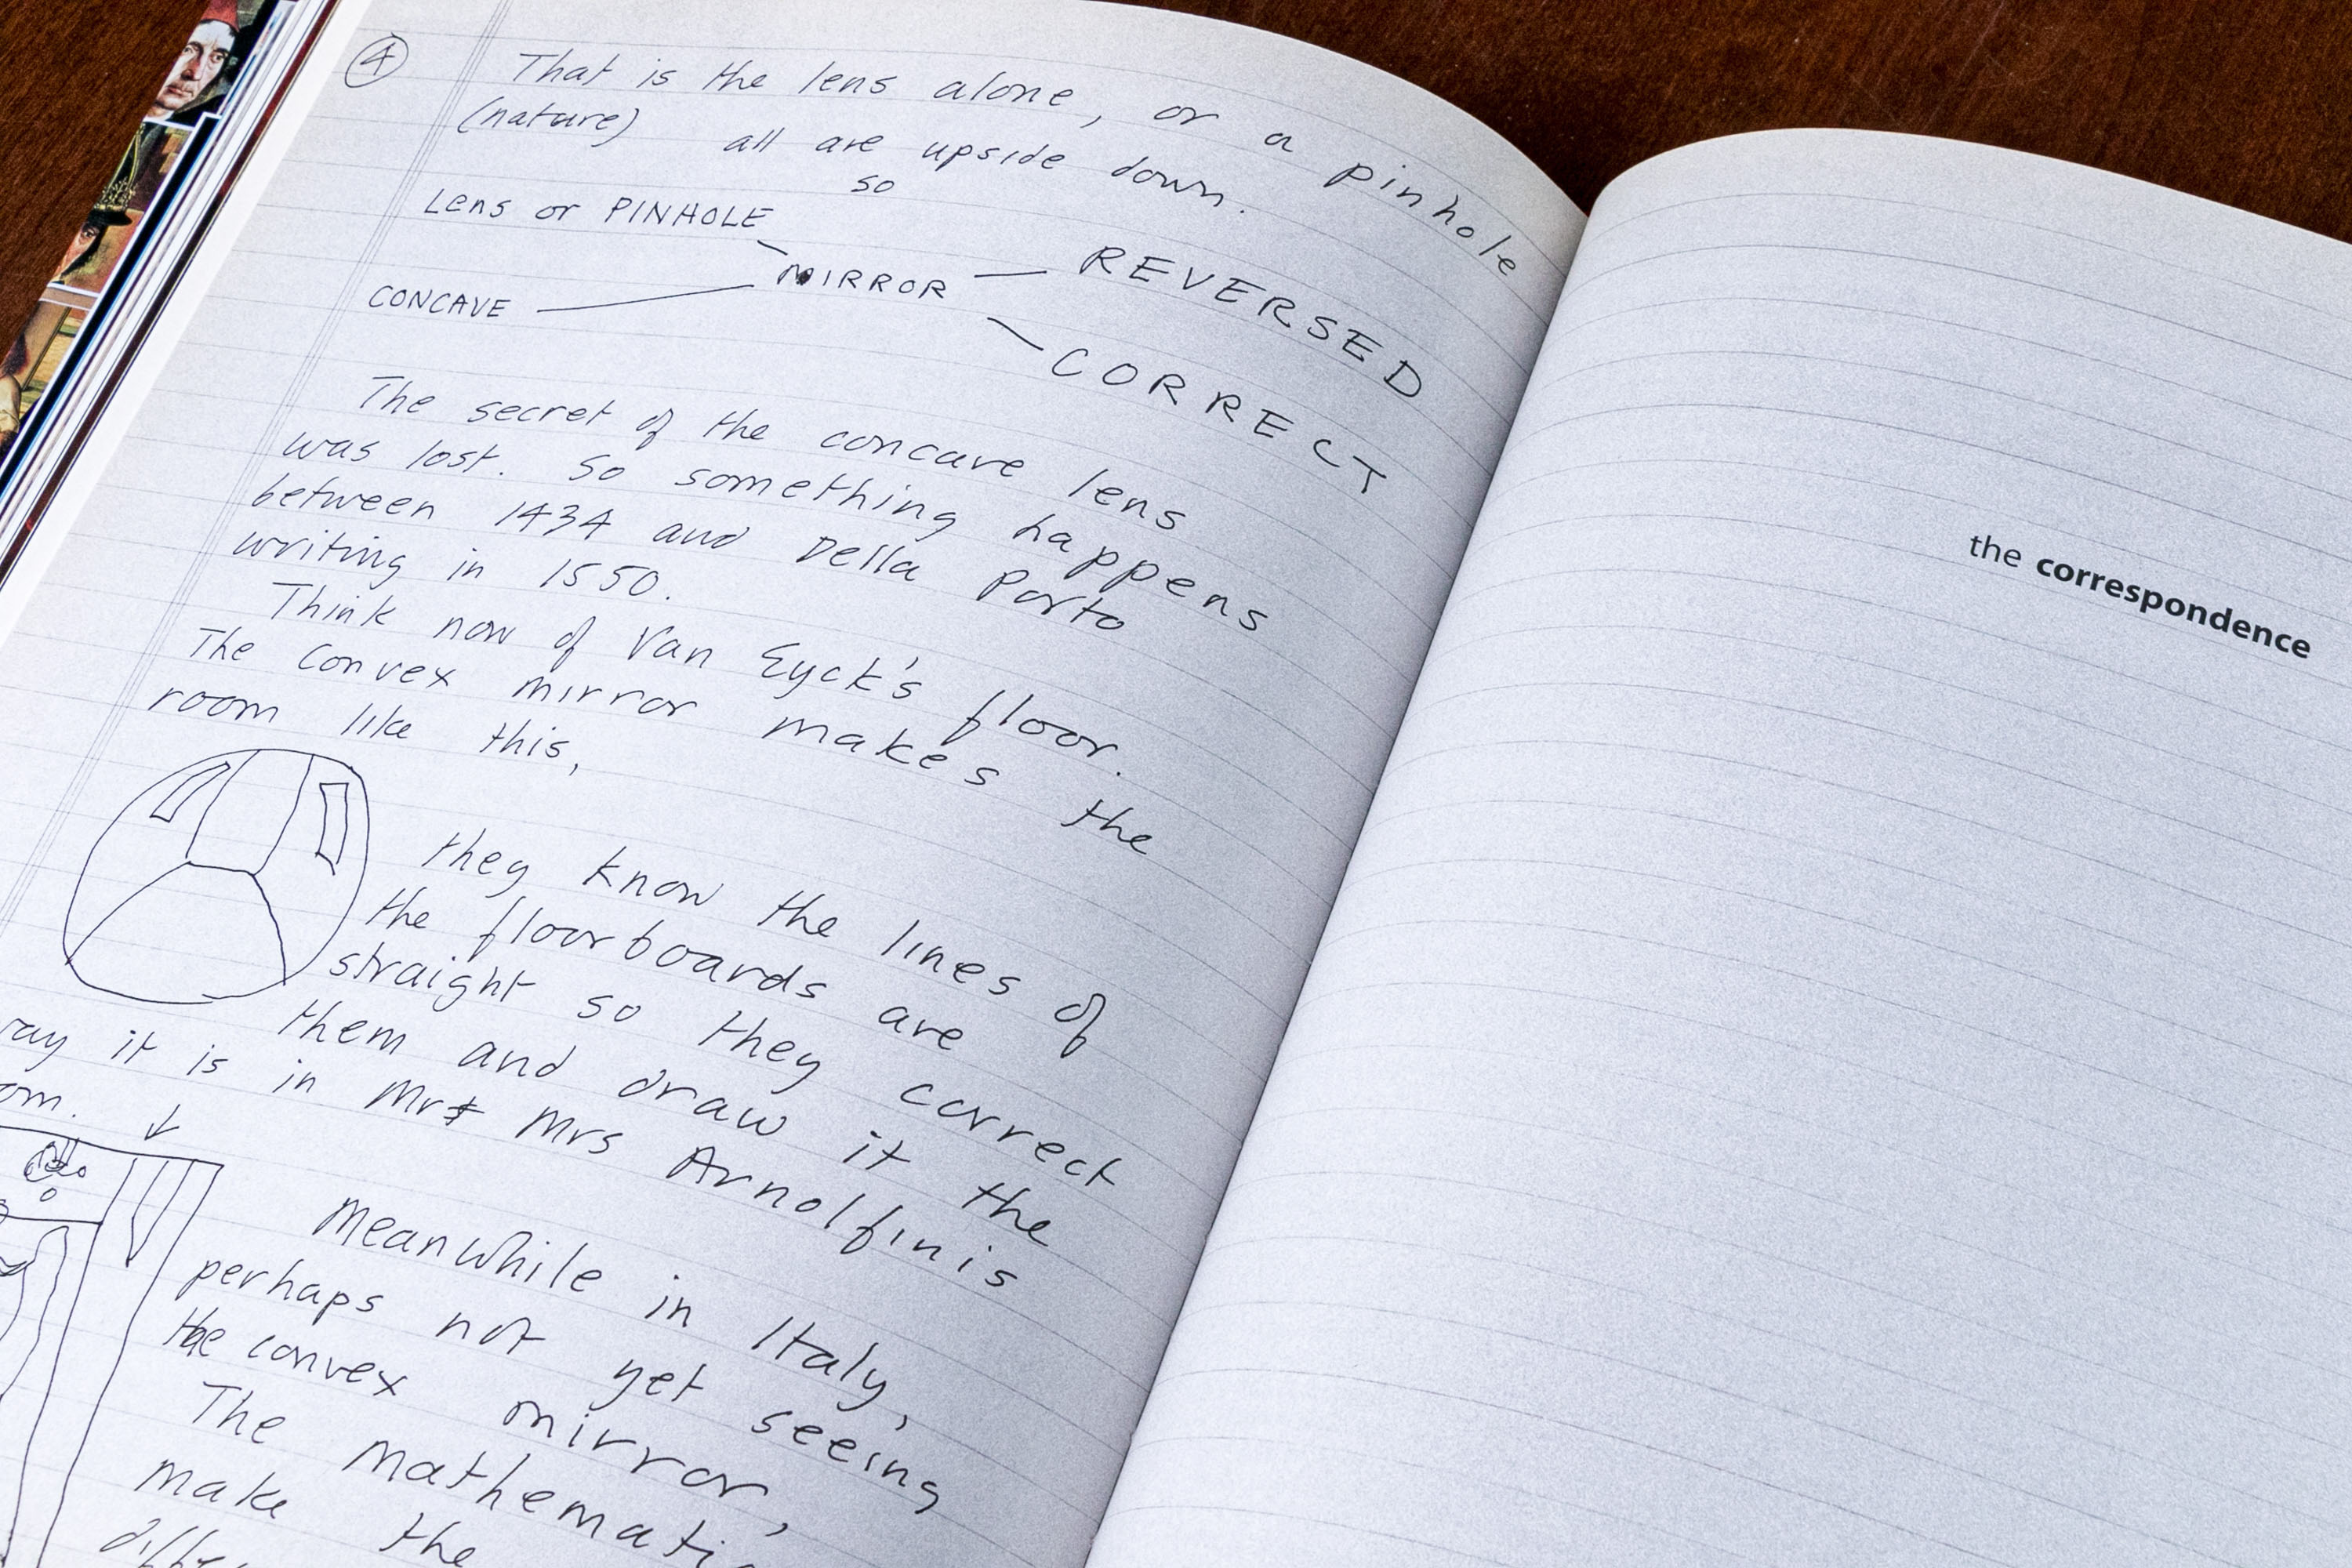 4
That is the lens alone, or a pinhole
(nature) all are upside down.
so
Lens or PINHOLE
MIRROR
REVERSED
CONCAVE
CORRECT
The secret of the concave lens
was lost. So something happens
between 1434 and Della Porto
writing in 1550.
Think now of Van Eyck's floor.
The convex mirror makes the
room like this,
they know the lines of
the floorboards are
straight so they correct
them and draw it the
it is in Mr & Mrs Arnolfinis
Meanwhile in Italy,
perhaps not yet seeing
the convex mirror,
The
make the
the correspondence